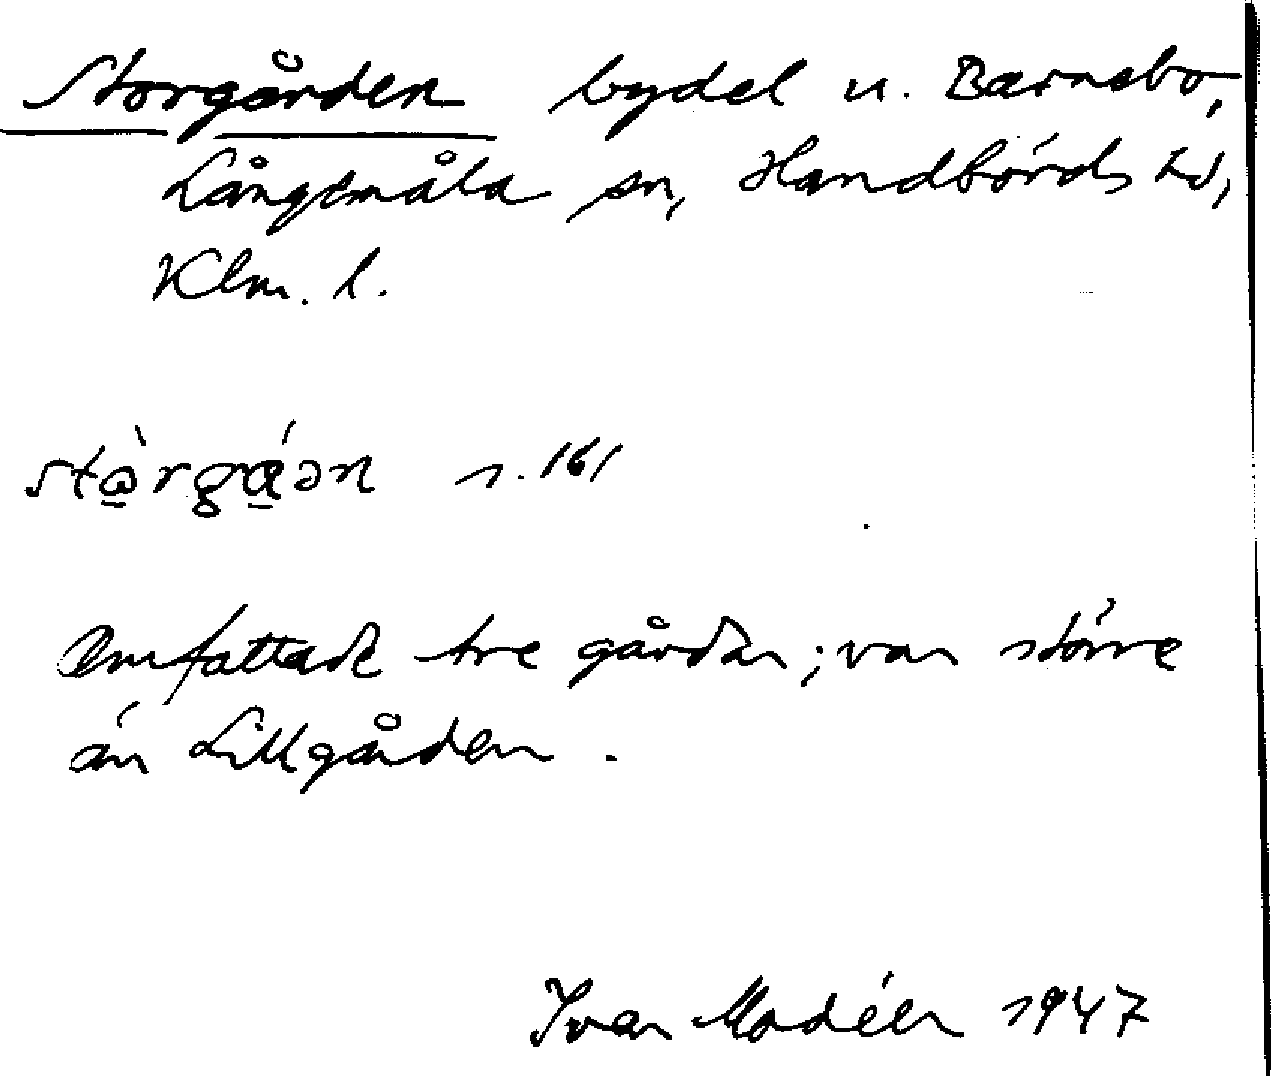 Storgården bydel u. Barnebo,
Långemåla sn, Handbörds hd,
Klm. l.
stò̱rgá̱ən s. 161
Omfattade tre gårdar; var större
än Lillgården.
Ivar Modéer 1947